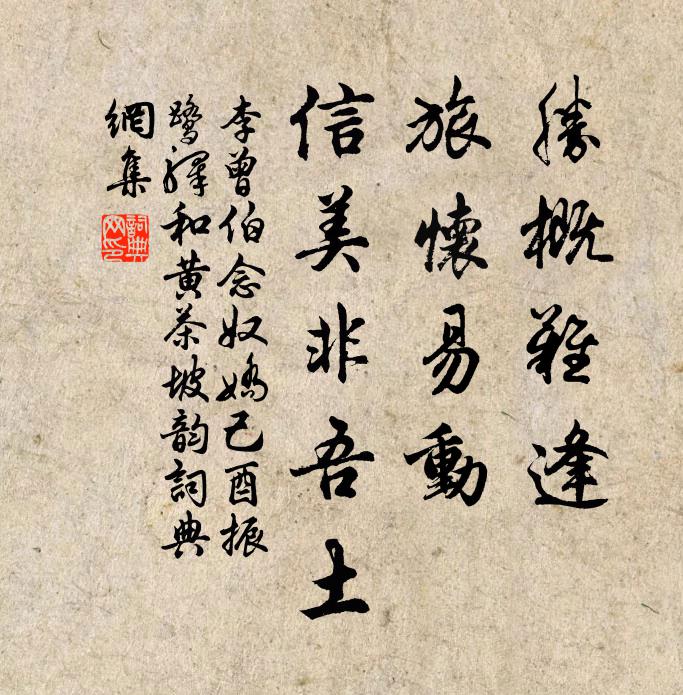 勝概難逢
旅懷易動
信美非吾土
李曾伯念奴嬌己酉振
鷺驛和黃茶坡韵詞典
網集
詞典
网印